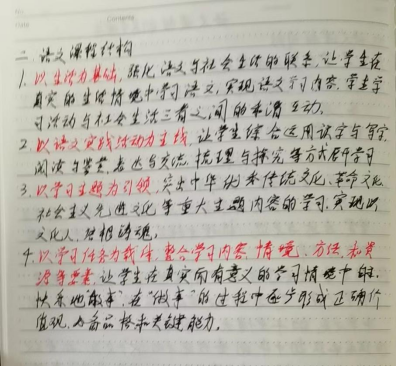 二、语文课程结构
1. 以生活为基础，强化语文与社会生活的联系，让学生在
真实的生活情境中学习语文，实现语文学习内容、学生学
习活动与社会生活三者之间的和谐互动。
2. 以语文实践活动为主线，让学生综合运用识字与写字、
阅读与鉴赏、表达与交流、梳理与探究等方式开展学习
3. 以学习主题为引领，突出中华优秀传统文化、革命文化、
社会主义先进文化等重大主题内容的学习，实现以
文化人、培根铸魂。
4. 以学习任务为载体，整合学习内容、情境、方法和资
源等要素，让学生在真实而有意义的学习情境中
快乐地“做事”，在“做事”的过程中逐步形成正确价
值观、必备品格和关键能力。